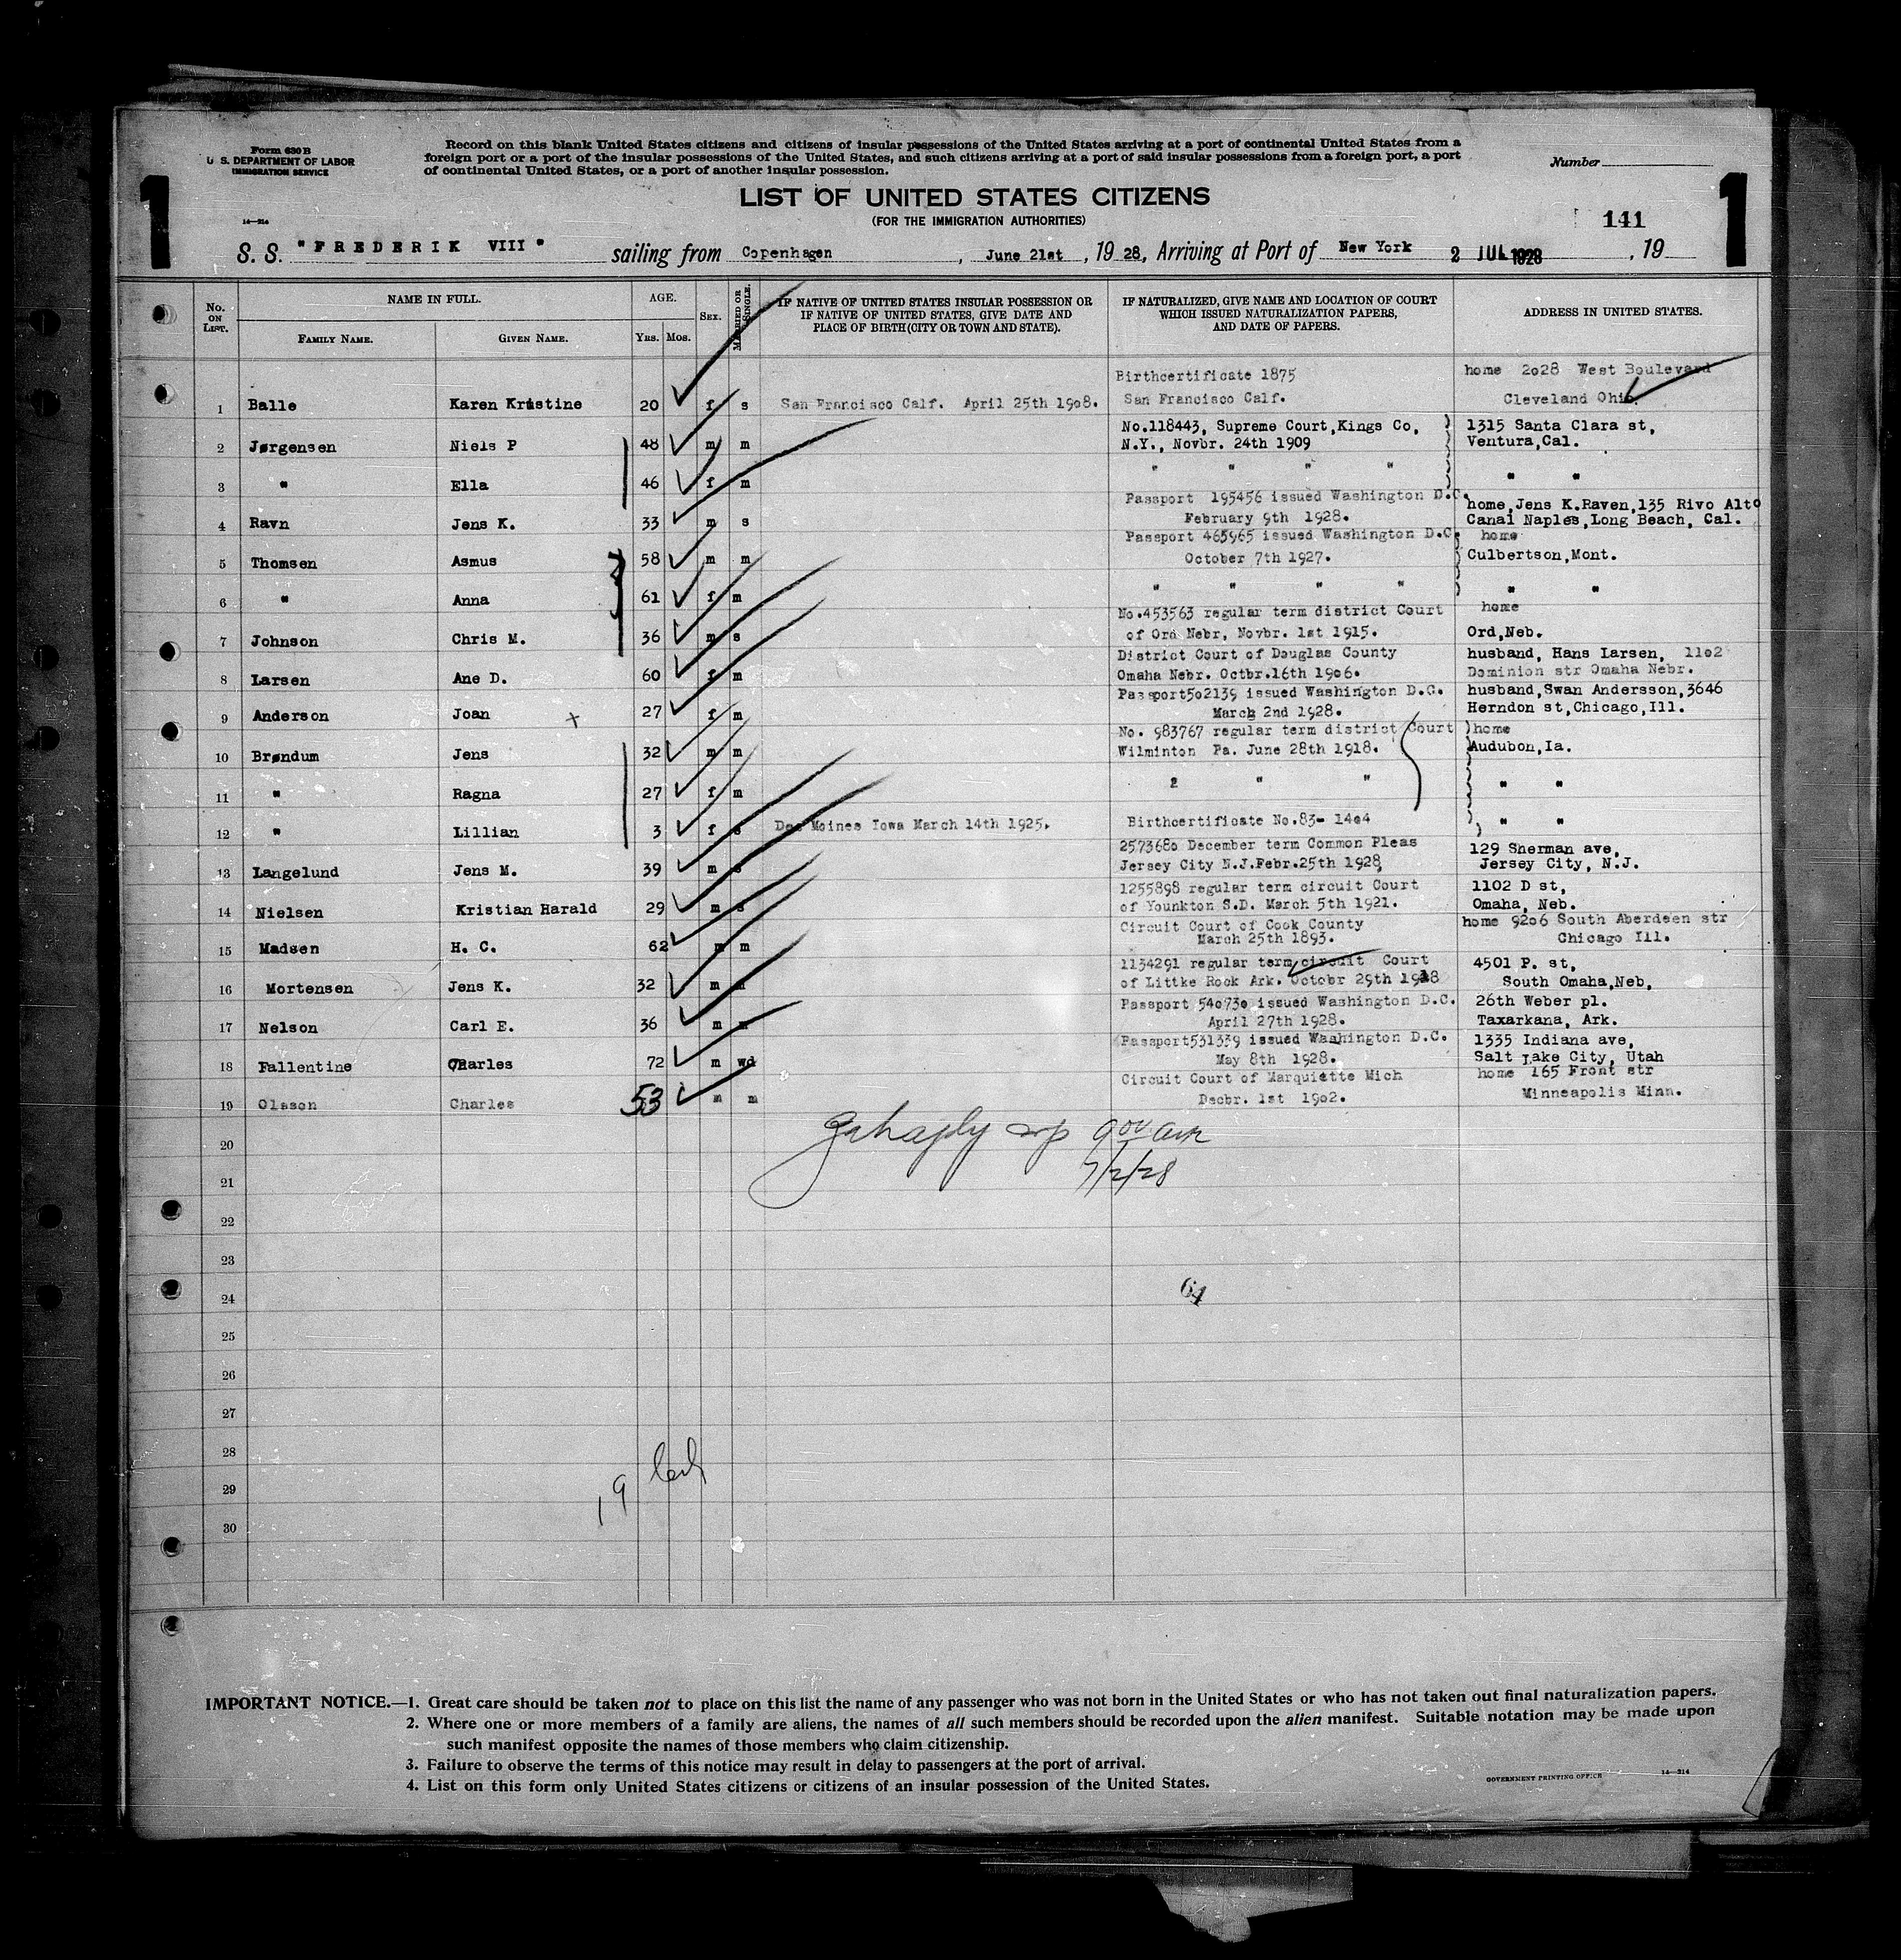 Form 630 B
U. S. DEPARTMENT OF LABOR
IMMIGRATION SERVICE
Record on this blank United States citizens and citizens of insular possessions of the United States arriving at a port of continental United States from a
foreign port or a port of the insular possessions of the United States, and such citizens arriving at a port of said insular possessions from a foreign port, a port
of continental United States, or a port of another insular possession.
Number
1
1
LIST OF UNITED STATES CITIZENS
(FOR THE IMMIGRATION AUTHORITIES)
14—214
141
S. S. "FREDERIK VIII" sailing from Copenhagen, June 21st, 19 28, Arriving at Port of New York 2 JUL 1928, 19
No. ON LIST. NAME IN FULL. AGE. SEX. MARRIED OR SINGLE. IF NATIVE OF UNITED STATES INSULAR POSSESSION OR IF NATIVE OF UNITED STATES, GIVE DATE AND PLACE OF BIRTH (CITY OR TOWN AND STATE). IF NATURALIZED, GIVE NAME AND LOCATION OF COURT WHICH ISSUED NATURALIZATION PAPERS, AND DATE OF PAPERS. ADDRESS IN UNITED STATES.
FAMILY NAME. GIVEN NAME. YRS. MOS.
Birthcertificate 1875 home 2028 West Boulevard
1 Balle Karen Kristine 20 f s San Francisco Calf. April 25th 1908. San Francisco Calf. Cleveland Ohio.
No.118443, Supreme Court, Kings Co, 1315 Santa Clara st,
2 Jørgensen Niels P 48 m m N.Y., Novbr. 24th 1909 Ventura, Cal.
3 " Ella 46 f m " " " " " "
Passport 195456 issued Washington D.C. home, Jens K.Raven, 135 Rivo Alto
4 Ravn Jens K. 33 m s February 9th 1928. Canal Naples, Long Beach, Cal.
Passport 465965 issued Washington D.C. home
5 Thomsen Asmus 58 m m October 7th 1927. Culbertson, Mont.
6 " Anna 61 f m " " " " " "
No.453563 regular term district Court home
7 Johnson Chris M. 36 m s of Ord Nebr, Novbr. 1st 1915. Ord, Neb.
District Court of Douglas County husband, Hans Larsen, 1102
8 Larsen Ane D. 60 f m Omaha Nebr. Octbr.16th 1906. Dominion str Omaha Nebr.
Passport502139 issued Washington D.C. husband, Swan Andersson, 3646
9 Anderson Joan 27 f m March 2nd 1928. Herndon st, Chicago, Ill.
No. 983767 regular term district Court home
10 Brøndum Jens 32 m m Wilminton Pa. June 28th 1918. Audubon, Ia.
11 " Ragna 27 f m 2 " " " "
12 " Lillian 3 f s Des Moines Iowa March 14th 1925. Birthcertificate No.83- 1404 " "
2573680 December term Common Pleas 129 Sherman ave,
13 Langelund Jens M. 39 m s Jersey City N.J.Febr.25th 1928 Jersey City, N.J.
1255898 regular term circuit Court 1102 D st,
14 Nielsen Kristian Harald 29 m s of Younkton S.D. March 5th 1921. Omaha, Neb.
Circuit Court of Cook County home 9206 South Aberdeen str
15 Madsen H. C. 62 m m March 25th 1893. Chicago Ill.
1134291 regular term circuit Court 4501 P. st,
16 Mortensen Jens K. 32 m of Littke Rock Ark. Octobr 29th 1918 South Omaha, Neb,
Passport 540730 issued Washington D.C. 26th Weber pl.
17 Nelson Carl E. 36 m April 27th 1928. Taxarkana, Ark.
Passport531339 issued Washington D.C. 1335 Indiana ave,
18 Fallentine Charles 72 m wd May 8th 1928. Salt Lake City, Utah
Circuit Court of Marquiette Mich home 165 Front str
19 Olsson Charles 53 m m Decbr. 1st 1902. Minneapolis Minn.
20
7/2/28
21
22
23
64
24
25
26
27
28
29
19
30
IMPORTANT NOTICE.—1. Great care should be taken not to place on this list the name of any passenger who was not born in the United States or who has not taken out final naturalization papers.
2. Where one or more members of a family are aliens, the names of all such members should be recorded upon the alien manifest. Suitable notation may be made upon
such manifest opposite the names of those members who claim citizenship.
3. Failure to observe the terms of this notice may result in delay to passengers at the port of arrival.
4. List on this form only United States citizens or citizens of an insular possession of the United States.
GOVERNMENT PRINTING OFFICE 14—214